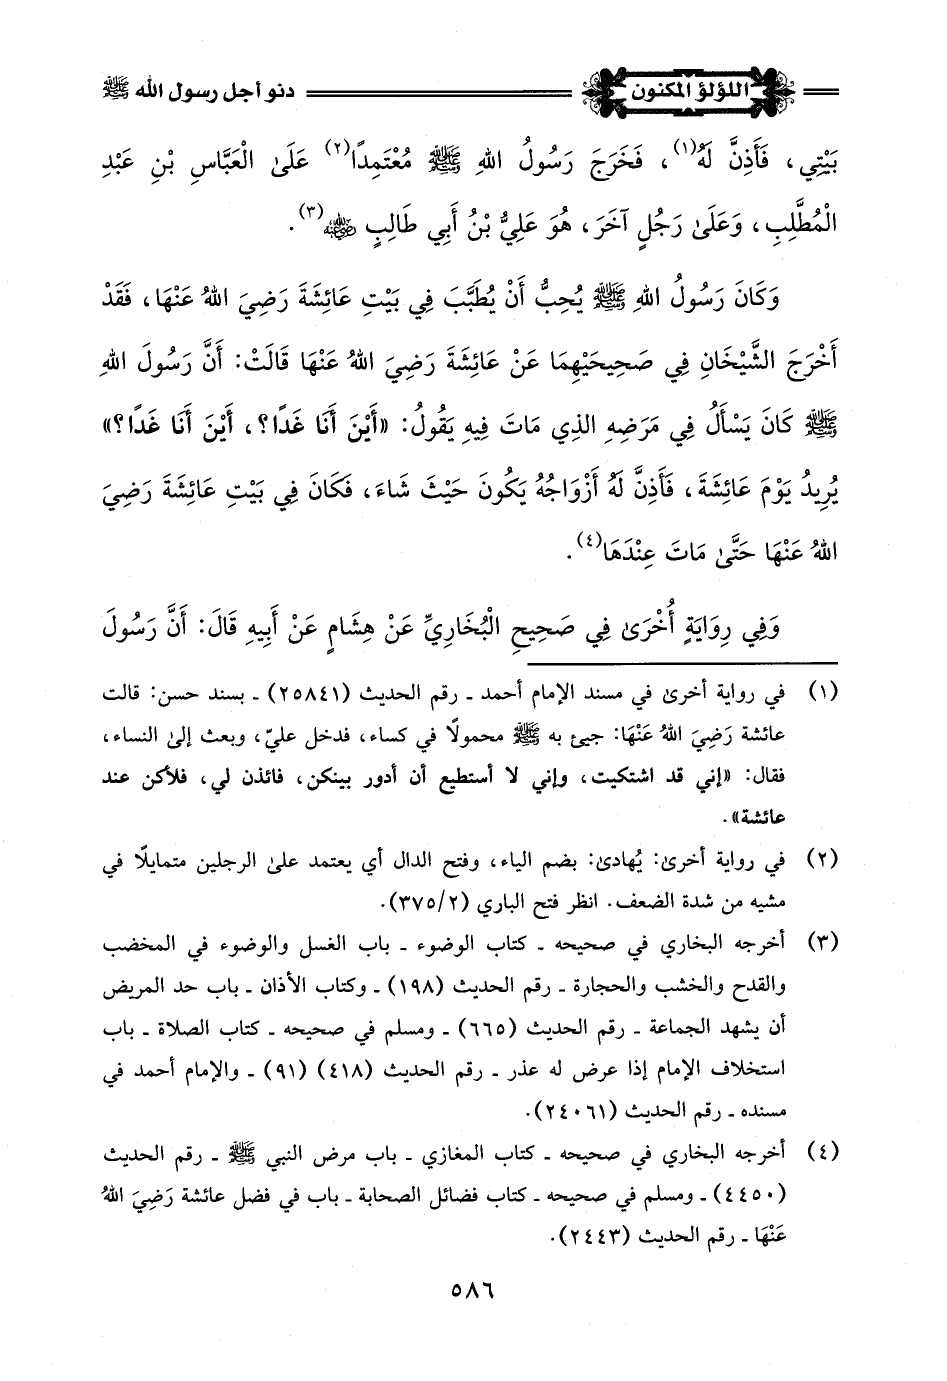 اللؤلؤ المكنون دنو أجل رسول الله ﷺ
بَيْتِي، فَأَذِنَّ لَهُ(١)، فَخَرَجَ رَسُولُ اللهِ ﷺ مُعْتَمِدًا(٢) عَلَىٰ الْعَبَّاسِ بْنِ عَبْدِ
الْمُطَّلِبِ، وَعَلَىٰ رَجُلٍ آخَرَ، هُوَ عَلِيُّ بْنُ أَبِي طَالِبٍ رضي الله عنه(٣).
وَكَانَ رَسُولُ اللهِ ﷺ يُحِبُّ أَنْ يُطَبَّبَ فِي بَيْتِ عَائِشَةَ رَضِيَ اللهُ عَنْهَا، فَقَدْ
أَخْرَجَ الشَّيْخَانِ فِي صَحِيحَيْهِمَا عَنْ عَائِشَةَ رَضِيَ اللهُ عَنْهَا قَالَتْ: أَنَّ رَسُولَ اللهِ
ﷺ كَانَ يَسْأَلُ فِي مَرَضِهِ الذِي مَاتَ فِيهِ يَقُولُ: «أَيْنَ أَنَا غَدًا؟، أَيْنَ أَنَا غَدًا؟»
يُرِيدُ يَوْمَ عَائِشَةَ، فَأَذِنَّ لَهُ أَزْوَاجُهُ يَكُونَ حَيْثُ شَاءَ، فَكَانَ فِي بَيْتِ عَائِشَةَ رَضِيَ
اللهُ عَنْهَا حَتَّىٰ مَاتَ عِنْدَهَا(٤).
وَفِي رِوَايَةٍ أُخْرَىٰ فِي صَحِيحِ الْبُخَارِيِّ عَنْ هِشَامٍ عَنْ أَبِيهِ قَالَ: أَنَّ رَسُولَ
(١) في رواية أخرىٰ في مسند الإمام أحمد ـ رقم الحديث (٢٥٨٤١) ـ بسند حسن: قالت
عائشة رَضِيَ اللهُ عَنْهَا: جيئ به ﷺ محمولًا في كساء، فدخل عليّ، وبعث إلىٰ النساء،
فقال: «إني قد اشتكيت، وإني لا أستطيع أن أدور بينكن، فائذن لي، فلأكن عند
عائشة».
(٢) في رواية أخرىٰ: يُهادىٰ: بضم الياء، وفتح الدال أي يعتمد علىٰ الرجلين متمايلًا في
مشيه من شدة الضعف. انظر فتح الباري (٣٧٥/٢).
(٣) أخرجه البخاري في صحيحه ـ كتاب الوضوء ـ باب الغسل والوضوء في المخضب
والقدح والخشب والحجارة ـ رقم الحديث (١٩٨) ـ وكتاب الأذان ـ باب حد المريض
أن يشهد الجماعة ـ رقم الحديث (٦٦٥) ـ ومسلم في صحيحه ـ كتاب الصلاة ـ باب
استخلاف الإمام إذا عرض له عذر ـ رقم الحديث (٤١٨) (٩١) ـ والإمام أحمد في
مسنده ـ رقم الحديث (٢٤٠٦١).
(٤) أخرجه البخاري في صحيحه ـ كتاب المغازي ـ باب مرض النبي ﷺ ـ رقم الحديث
(٤٤٥٠) ـ ومسلم في صحيحه ـ كتاب فضائل الصحابة ـ باب في فضل عائشة رَضِيَ اللهُ
عَنْهَا ـ رقم الحديث (٢٤٤٣).
٥٨٦